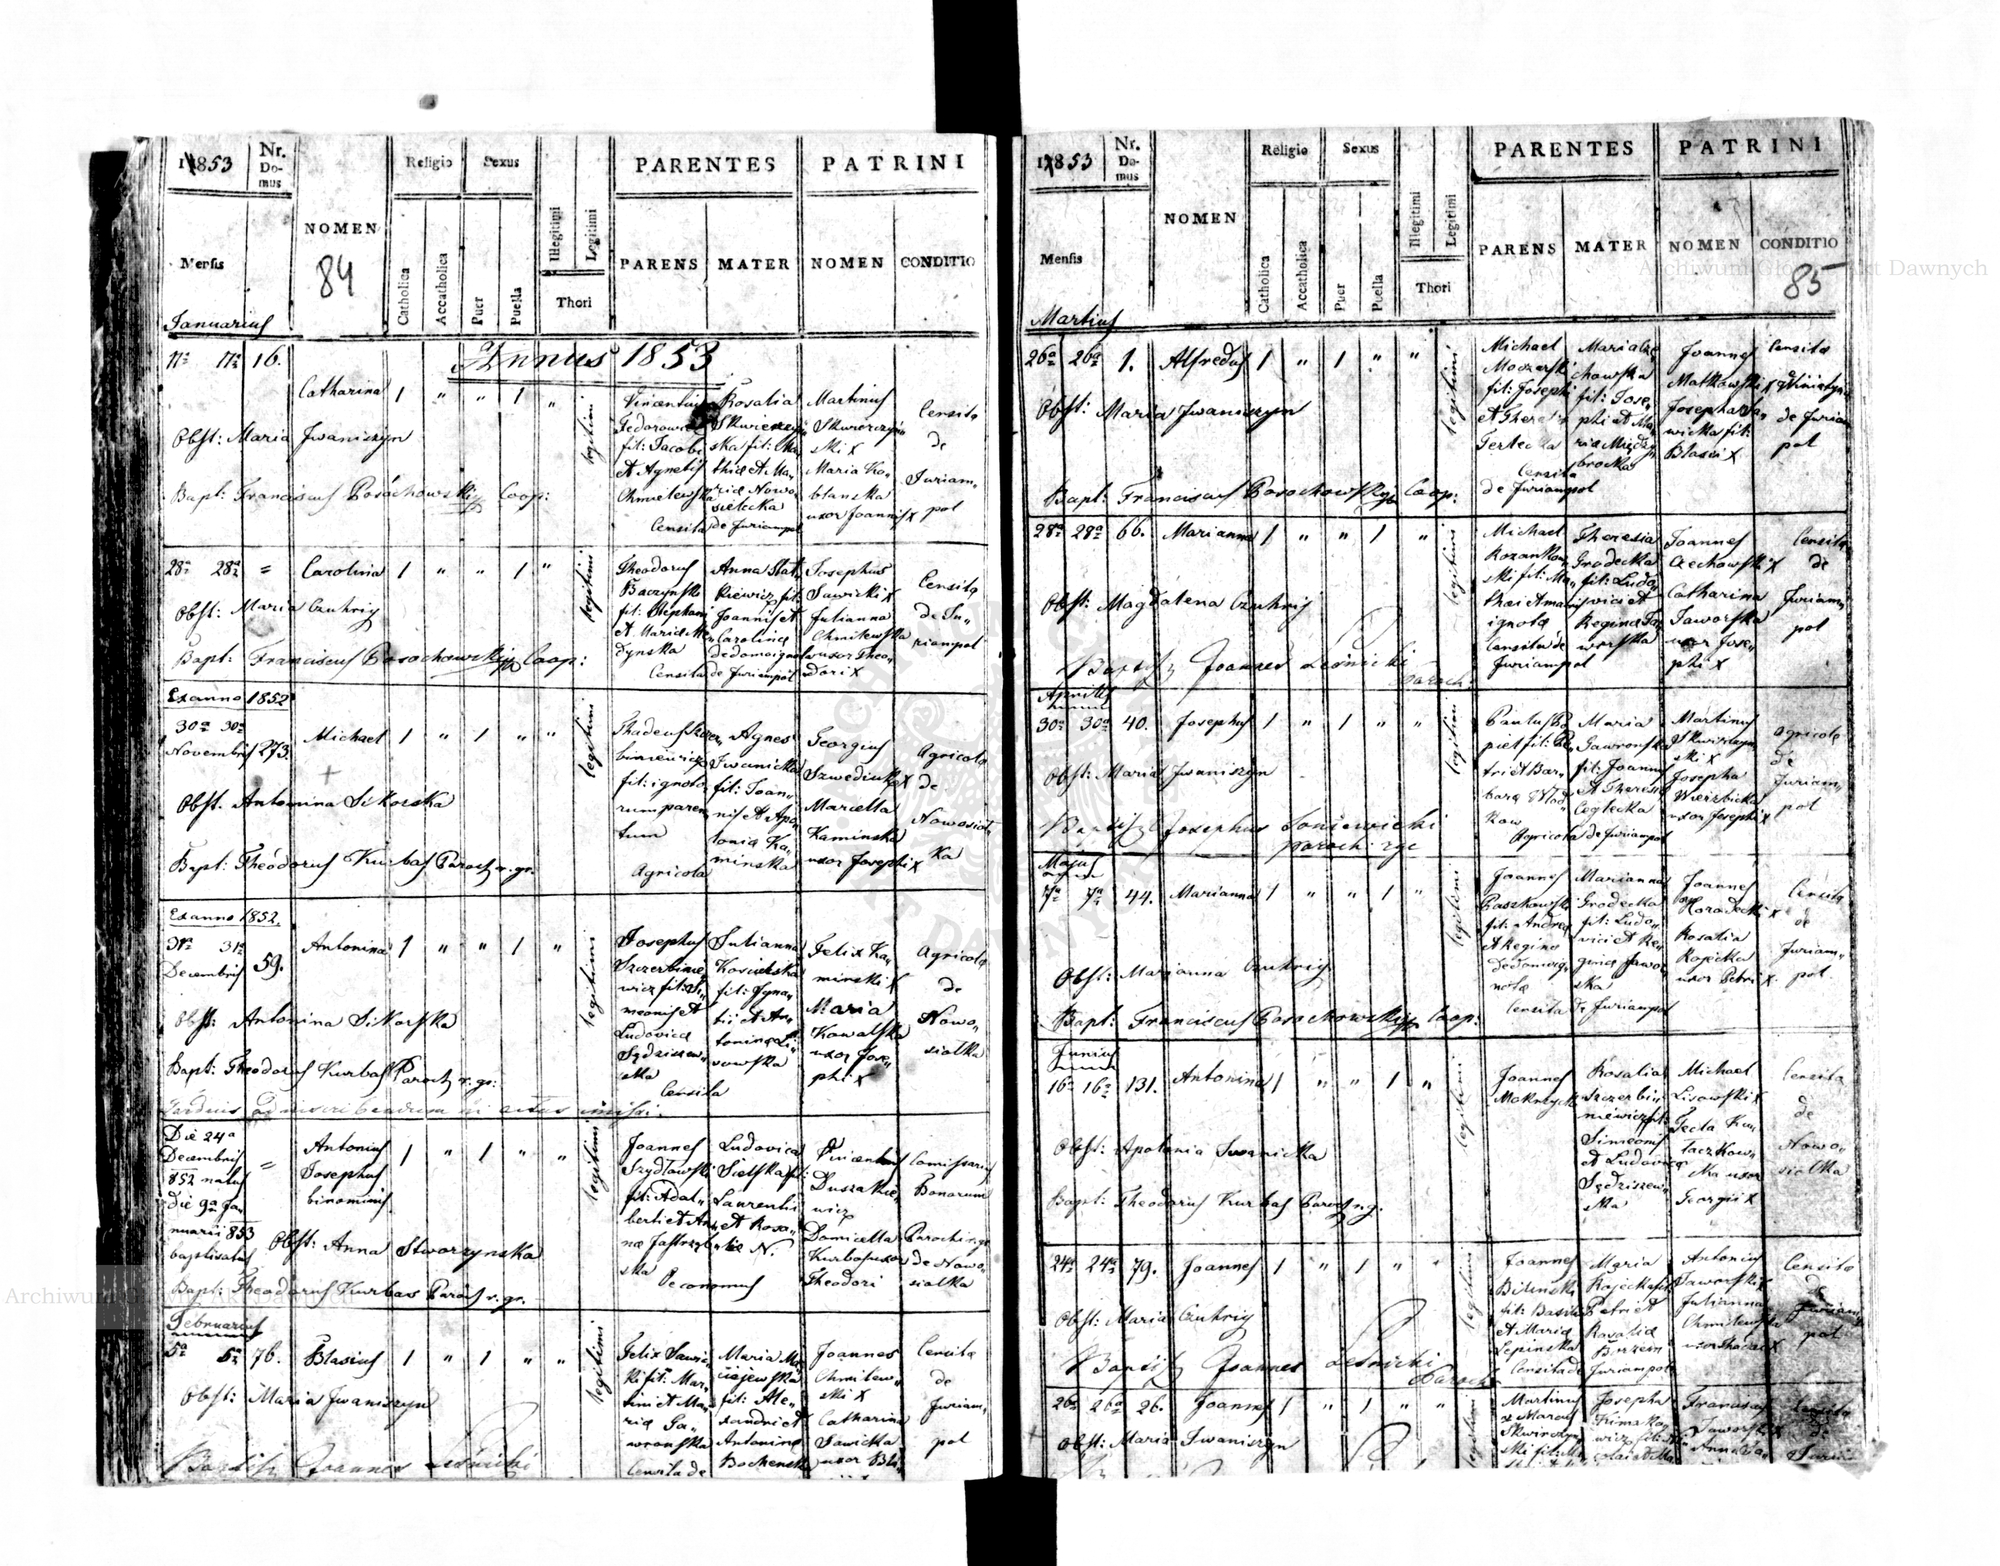 1853
Nr. Domus
NOMEN
Religio
Sexus
PARENTES
PATRINI
Mensis
Catholica
Accatholica
Puer
Puella
Illegitimi
Legitimi
Thori
PARENS
MATER
NOMEN
CONDITIO
84
Januarius
Annus 1853
17a 17a 16.
Catharina 1 " " 1 "
legitimi
Vincentius
fil: Jacobi
et Agnetis
Censita de Juriampol
Rosalia
ska fil: Ma
thiæ et Ma
ria Nowo
sielecka
Martinus
Skwirczyń
ski X
Maria Ko
blanska
uxor Joannis X
Censita
de
Juriam
pol
Obst: Maria Iwaniszyn
Bapt: Franciscus Posochowski Coop:
28a 28a =
Carolina 1 " " 1 "
legitimi
Theodorus
Baczynski
fil: Stephani
et Maria
Censita de Juriampol
Anna
fil:
Joannis et
Carolina
de domo ignota
Josephus
Sawicki X
Julianna
Chmilewska
uxor Theo
dori X
Censita
de Ju
riampol
Obst: Maria Czuhrij
Bapt: Franciscus Posochowski Coop:
Ex anno 1852
30a 30a
Novembris 273.
Michael 1 " 1 " "
legitimi
Thadeus
fil: ignoto
rum paren
tum
Agricola
Agnes
Iwanicka
fil: Joan
nis et Apo
lonia Ka
minska
Georgius
Szwediuk X
Mariella
Kaminska
uxor Josephi X
Agricola
de
Nowosioł
ka
Obst: Antonina Sikorska
Bapt: Theodorus Kurbas Paroch r. gr.
Ex anno 1852.
31a 31a
Decembris 59.
Antonina 1 " " 1 "
legitimi
Josephus
Szczerbinie
wicz fil: Si
meonis et
Ludovica
Sędziszew
ska
Censita
Julianna
fil: Igna
tii et An
tonina Li
sowska
Felix Ka
minski X
Maria
Kowalska
uxor Jose
phi X
Agricola
de
Nowo
siolka
Obst: Antonina Sikorska
Bapt: Theodorus Kurbas Paroch r. gr:
Die 24a
Decembris
852 natus
Die 9a Ja
nuarii 853
baptisatus
=
Antonius
Josephus
binominis
1 " 1 " "
legitimi
Joannes
Szydłowski
fil: Adal
berti et An
na Jastrzęb
ska
Oeconomus
Ludovica
Sielska fil:
Laurentii
et Rosa
lia N.
Vincentius
Duszakie
wicz
Domicella
Kurbas uxor
Theodori
Comissarius
Bonorum
Parochi r. gr
de Nowo
siolka
Obst: Anna Stworzynska
Bapt: Theodorus Kurbas Paroch r. gr.
Februarius
5a 5a 76.
Blasius 1 " 1 " "
legitimi
Felix Sawic
ki fil: Mar
tini et Ma
ria Ga
wronska
Censita de
Maria Ma
ciejewska
fil: Ale
xandri et
Antonina
Bochenska
Joannes
Chmilew
ski X
Catharina
Sawicka
uxor Bla
Censita
de
Juriam
pol
Obst: Maria Iwaniszyn
Baptiz Joannes Leśnicki
1853
Nr. Domus
NOMEN
Religio
Sexus
PARENTES
PATRINI
Mensis
Catholica
Accatholica
Puer
Puella
Illegitimi
Legitimi
Thori
PARENS
MATER
NOMEN
CONDITIO
85
Martius
26a 26a 1.
Alfredus 1 " 1 " "
legitimi
Michael
fil: Josephi
et Theresia
Tertecka
Censita
de Juriampol
Maria
chowska
fil: Jose
phi et Ma
ria
Joannes
Malkowski X
Josepha Sa
wicka fil:
Blasii X
Censita
de Juriam
pol
Obst: Maria Iwaniszyn
Bapt: Franciscus Posochowski Coop:
28a 28a 66.
Marianna 1 " " 1 "
legitimi
Michael
Rozankow
ski fil: Ma
thæi et matris
ignota
Censita de
Juriampol
Theresia
Grodecka
fil: Ludo
vici et
Regina Ja
worska
Joannes
Ciechowski X
Catharina
Jaworska
uxor Jose
phi X
Censita
de
Juriam
pol
Obst: Magdalena Czuhrij
Baptiz Joannes Leśnicki
Paroch
Aprilis
30a 30a 40.
Josephus 1 " 1 " "
legitimi
Paulus Po
piel fil: Pe
tri et Bar
bara Wlad
kow
Agricola de Juriampol
Maria
Gawronska
fil: Joannis
et Theresia
Ceglecka
Martinus
Skwirczyn
ski X
Josepha
Wierzbicka
uxor Josephi X
Agricola
de
Juriam
pol
Obst: Maria Iwaniszyn
Baptiz Josephus
paroch
Majus
7a 7a 44.
Marianna 1 " " 1 "
legitimi
Joannes
Paszkowski
fil: Andrea
et Regina
de domo ig
nota
Censita de Juriampol
Marianna
Grodecka
fil: Ludo
vici et Re
gina Jawor
ska
Joannes
Horadecki X
Rosalia
Rojecka
uxor Petri X
Censita
de
Juriam
pol.
Obst: Marianna Czuhrij
Bapt: Franciscus Posochowski Coop:
Junius
16a 16a 131.
Antonina 1 " " 1 "
legitimi
Joannes
Mokrzycki
Rosalia
Szczerbi
niewicz fil:
Simeonis
et Ludovica
Sędziszew
ska
Michael
Lisowski X
Tecla Ku
laczkow
ska uxor
Georgii X
Censita
de
Nowo
siolka
Obst: Apolonia Iwanicka
Bapt: Theodorus Kurbas Paroch r. g.
24a 24a 79.
Joannes 1 " 1 " "
legitimi
Joannes
Bilinski
fil: Basilii
et Maria
Lepinska
Censita de
Juriampol
Maria
Rojecka fil:
Petri et
Rosalia
Antonius
Jaworski X
Julianna
Chmilewska
uxor Thadæi X
Censita
de
Juriam
pol
Obst: Maria Czuhrij
Baptiz Joannes Leśnicki
Paroch
26a 26a 26.
Joannes 1 " 1 " "
legitimi
Martinus
et Marcus
Skwirczyn
ski fil:
Josepha
Klimako
wicz fil:
Franciscus
Jaworski X
Anna Ja
Censita
de
Obst: Maria Iwaniszyn
Archiwum Główne Akt Dawnych